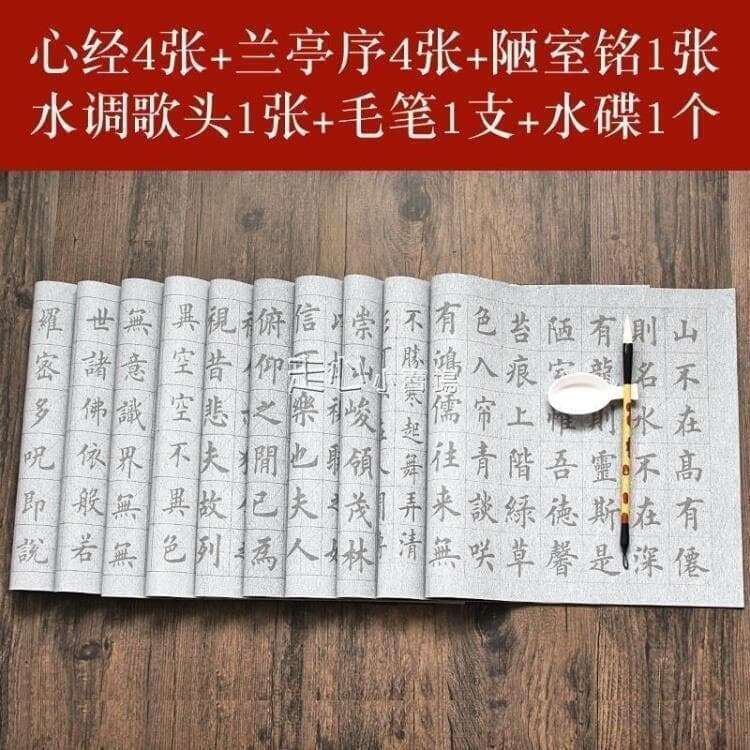 心经4张+兰亭序4张+陋室铭1张
水调歌头1张+毛笔1支+水碟1个
山不在高有僊
則名水不在深
有龍則靈斯是
陋室惟吾德馨
苔痕上階綠草
色入帘青談咲
有鴻儒往来無
不勝寒起舞弄清
崇山峻領茂林
信可樂也夫人
俯仰之閒已為
視昔悲夫故列
異空空不異色
無意識界無無
世諸佛依般若
羅密多呪即說
走心小賣場